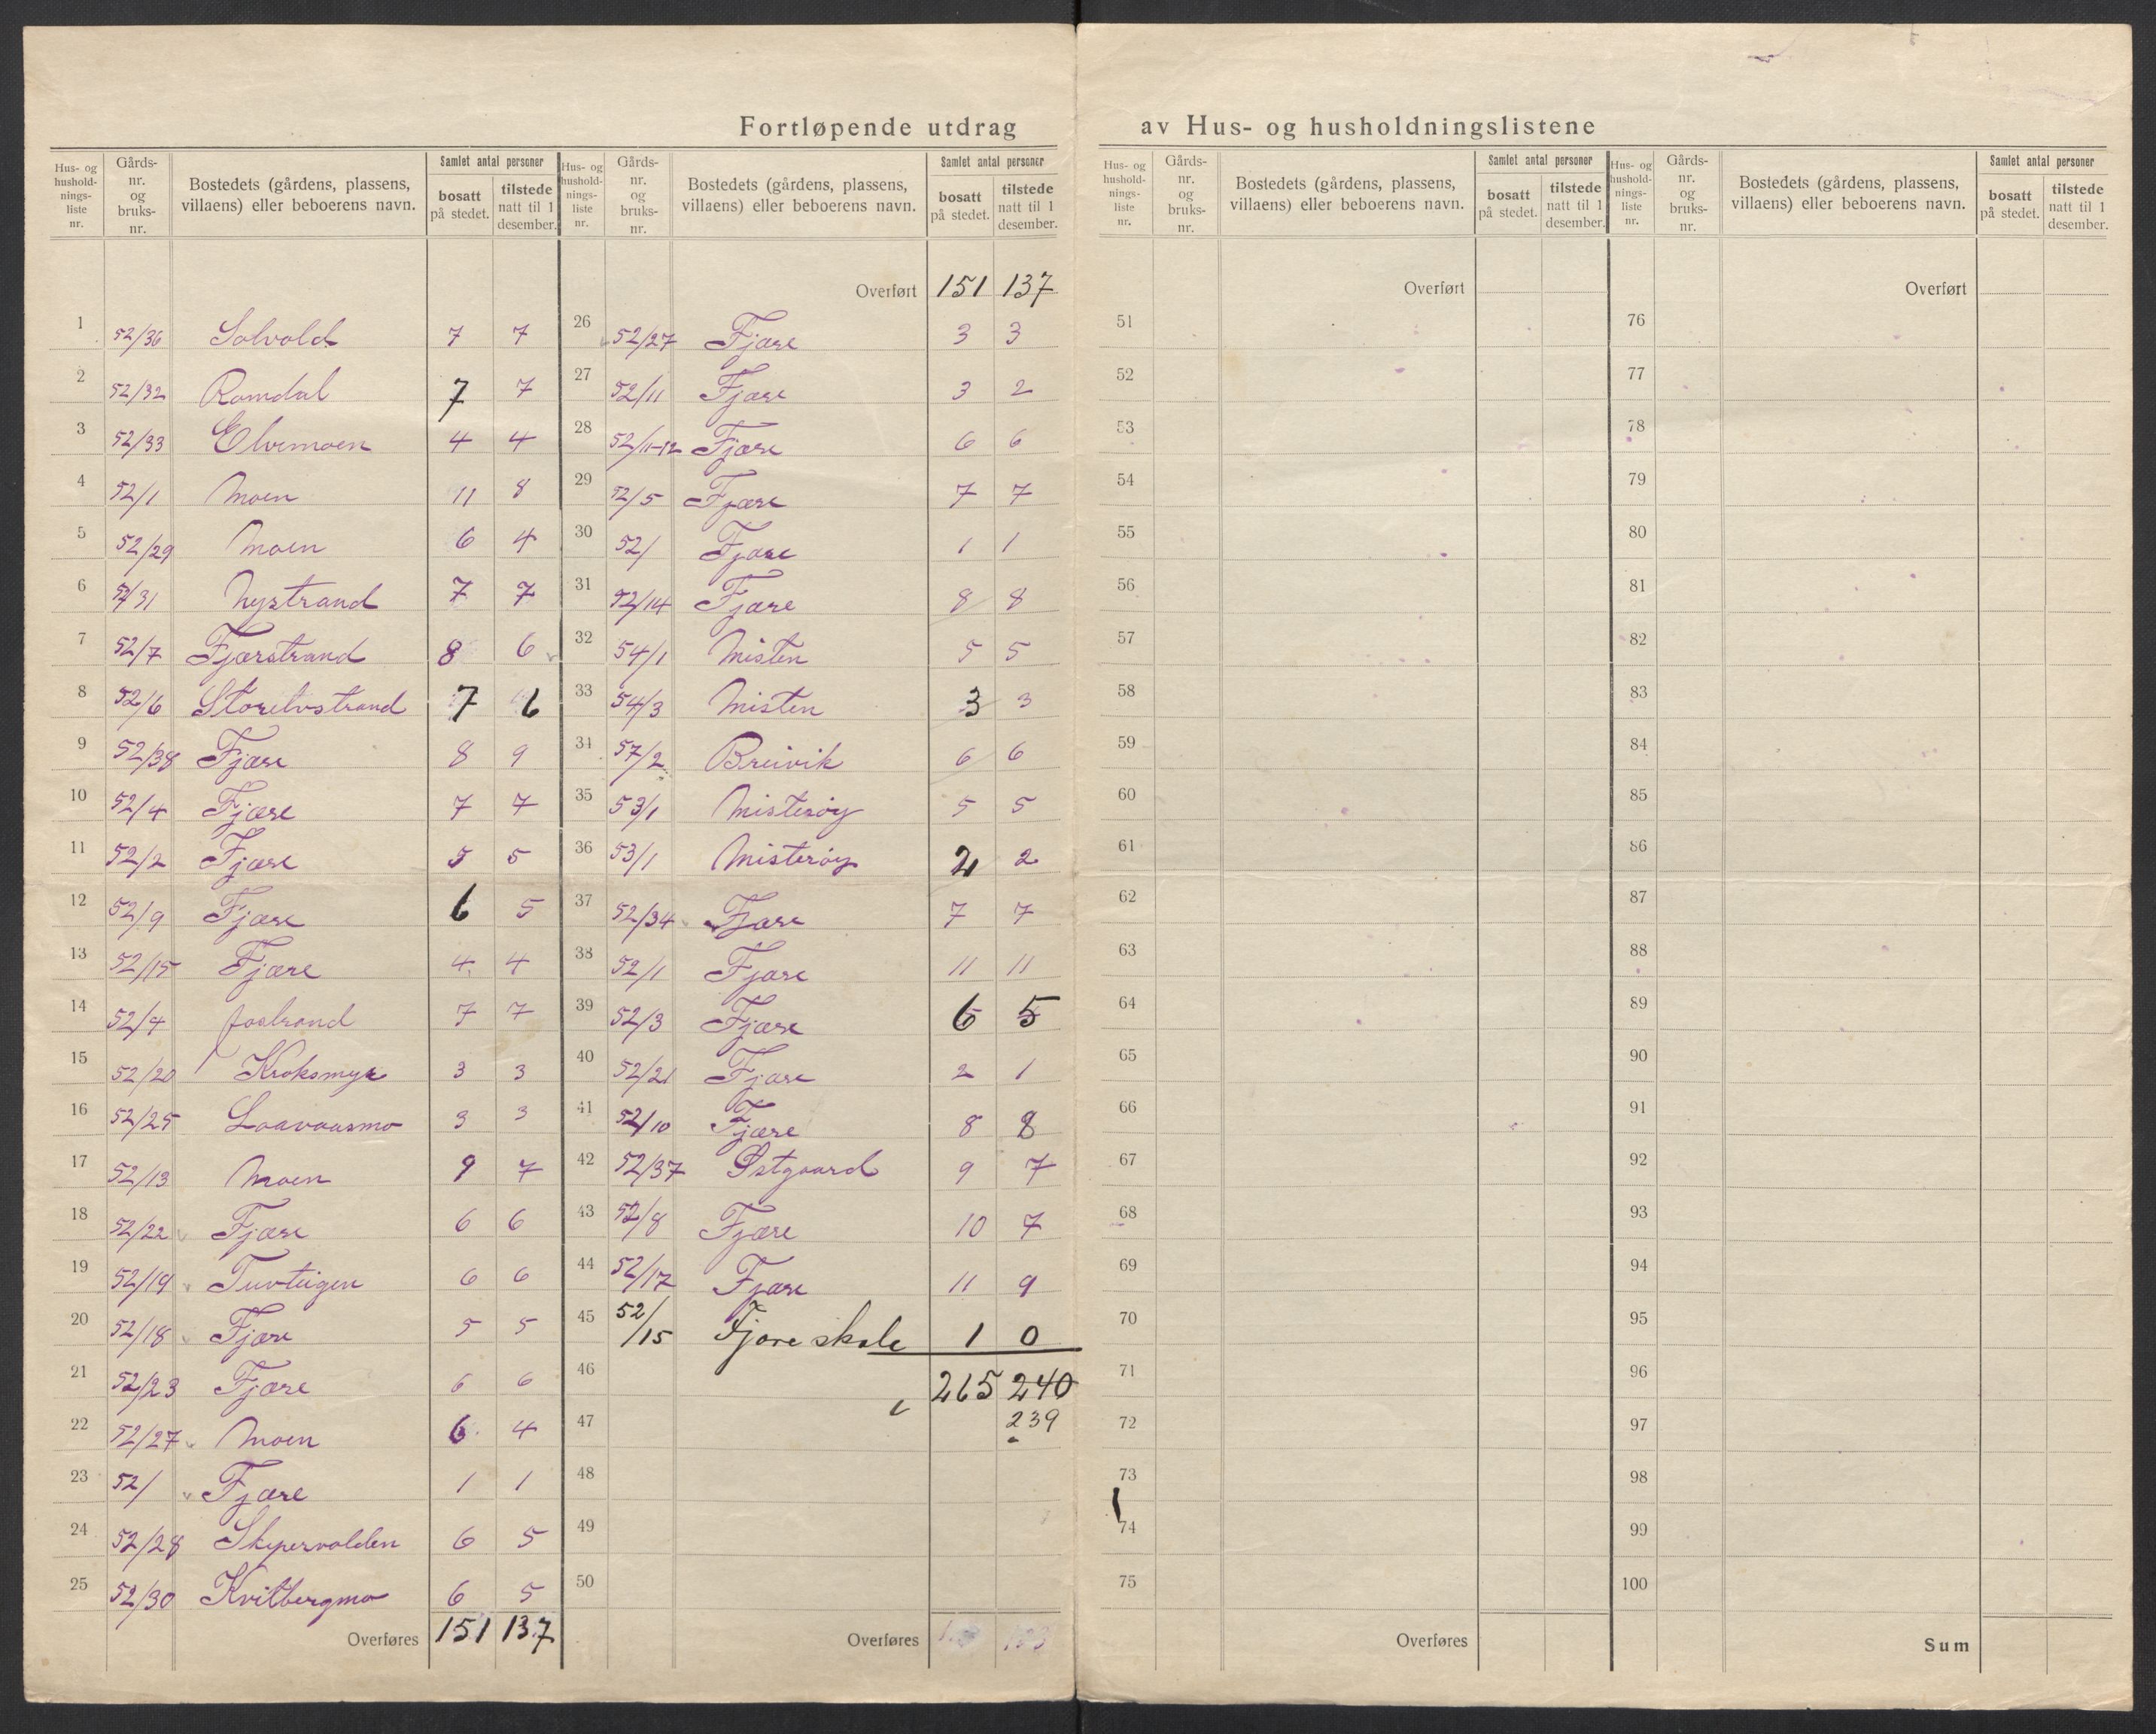 Fortløpende utdrag av Hus- og husholdningslistene
Hus- og husholdnings-liste nr. Gårds-nr. og bruks-nr. Bostedets (gårdens, plassens, villaens) eller beboerens navn. Samlet antal personer bosatt på stedet. tilstede natt til 1 desember.
1 52/36 Solvold 7 7
2 52/32 Romdal 7 7
3 52/33 Elvemoen 4 4
4 52/1 Moen 11 8
5 52/29 Moen 6 4
6 52/31 Nystrand 7 7
7 52/7 Fjærstrand 8 6
8 52/6 Storelvstrand 7 6
9 52/38 Fjære 8 9
10 52/4 Fjære 7 7
11 52/2 Fjære 5 5
12 52/9 Fjære 6 5
13 52/15 Fjære 4 4
14 52/4 7 7
15 52/20 Kroksmyr 3 3
16 52/25 Laavaasmo 3 3
17 52/13 Moen 9 7
18 52/22 Fjære 6 6
19 52/19 Tuvteigen 6 6
20 52/18 Fjære 5 5
21 52/23 Fjære 6 6
22 52/27 Moen 6 4
23 52/ Fjære 1 1
24 52/28 Skipervolden 6 5
25 52/30 Kvitbergmo 6 5
Overføres 151 137
Hus- og husholdnings-liste nr. Gårds-nr. og bruks-nr. Bostedets (gårdens, plassens, villaens) eller beboerens navn. Samlet antal personer bosatt på stedet. tilstede natt til 1 desember.
Overført 151 137
26 52/27 Fjære 3 3
27 52/11 Fjære 3 2
28 52/11-12 Fjære 6 6
29 52/5 Fjære 7 7
30 52/ Fjære 1 1
31 52/14 Fjære 8 8
32 54/1 Misten 5 5
33 54/3 Misten 3 3
34 57/2 Breivik 6 6
35 53/1 Misterøy 5 5
36 53/1 Misterøy 2 2
37 52/34 Fjære 7 7
38 52/1 Fjære 11 11
39 52/3 Fjære 6 5
40 52/21 Fjære 2 1
41 52/10 Fjære 8 8
42 52/37 Østgaard 9 7
43 52/8 Fjære 10 7
44 52/17 Fjære 11 9
45 52/15 Fjære skole 1 0
46 265 240
47 239
48
49
50
Overføres
Hus- og husholdnings-liste nr. Gårds-nr. og bruks-nr. Bostedets (gårdens, plassens, villaens) eller beboerens navn. Samlet antal personer bosatt på stedet. tilstede natt til 1 desember.
Overført
51
52
53
54
55
56
57
58
59
60
61
62
63
64
65
66
67
68
69
70
71
72
73
74
75
Overføres
Hus- og husholdnings-liste nr. Gårds-nr. og bruks-nr. Bostedets (gårdens, plassens, villaens) eller beboerens navn. Samlet antal personer bosatt på stedet. tilstede natt til 1 desember.
Overført
76
77
78
79
80
81
82
83
84
85
86
87
88
89
90
91
92
93
94
95
96
97
98
99
100
Sum